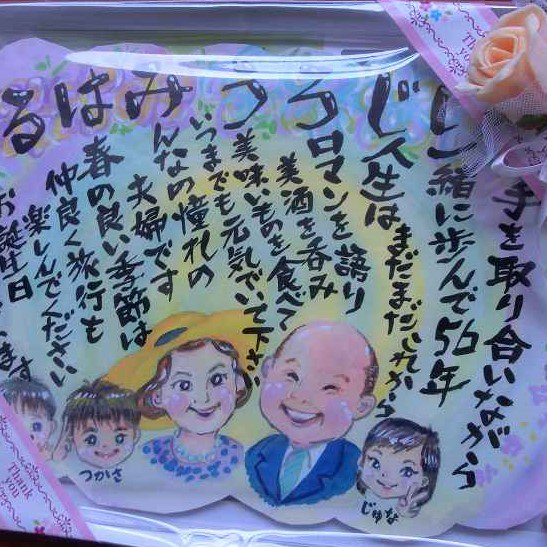 じろう みはる
手を取り合いながら
一緒に歩んで56年
人生は
まだまだこれから
ロマンを語り
美酒を呑み
美味いものを食べて
いつまでも元気でいて下さい
みんなの憧れの
夫婦です
春の良い季節は
仲良く旅行も
楽しんでください
お誕生日
ます
つかさ
じゅな
Thank you
Thank you